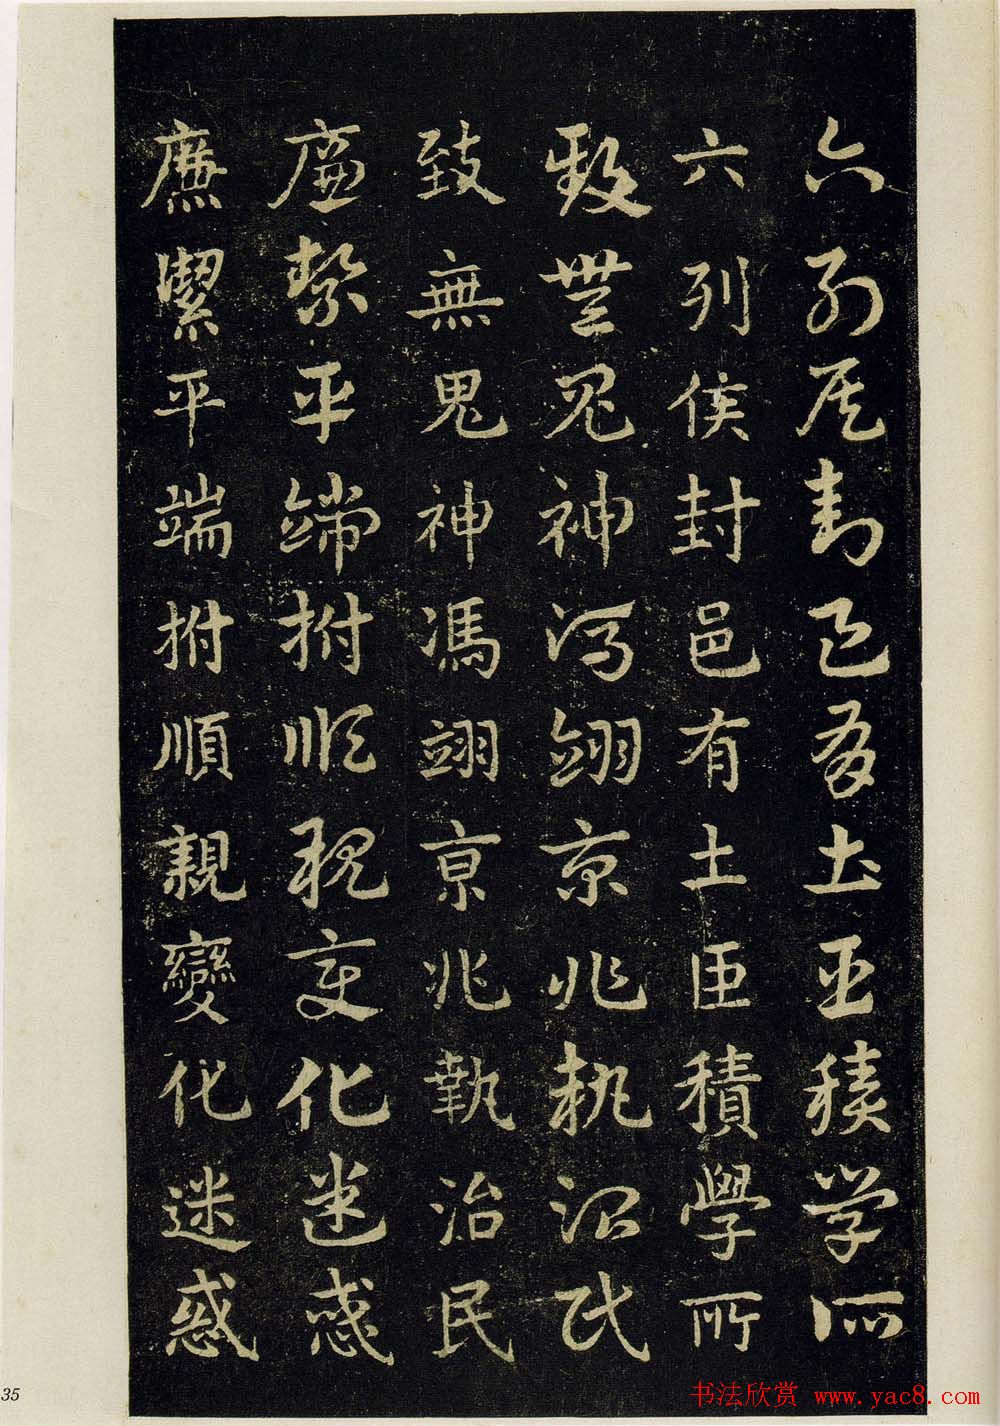 六列矦封邑有土臣積學所
六列矦封邑有土臣積學所
致無鬼神馮翊京兆執治民
致無鬼神馮翊京兆執治民
廉絜平端拊順親變化迷惑
廉潔平端拊順親變化迷惑
35
书法欣赏 www.yac8.com